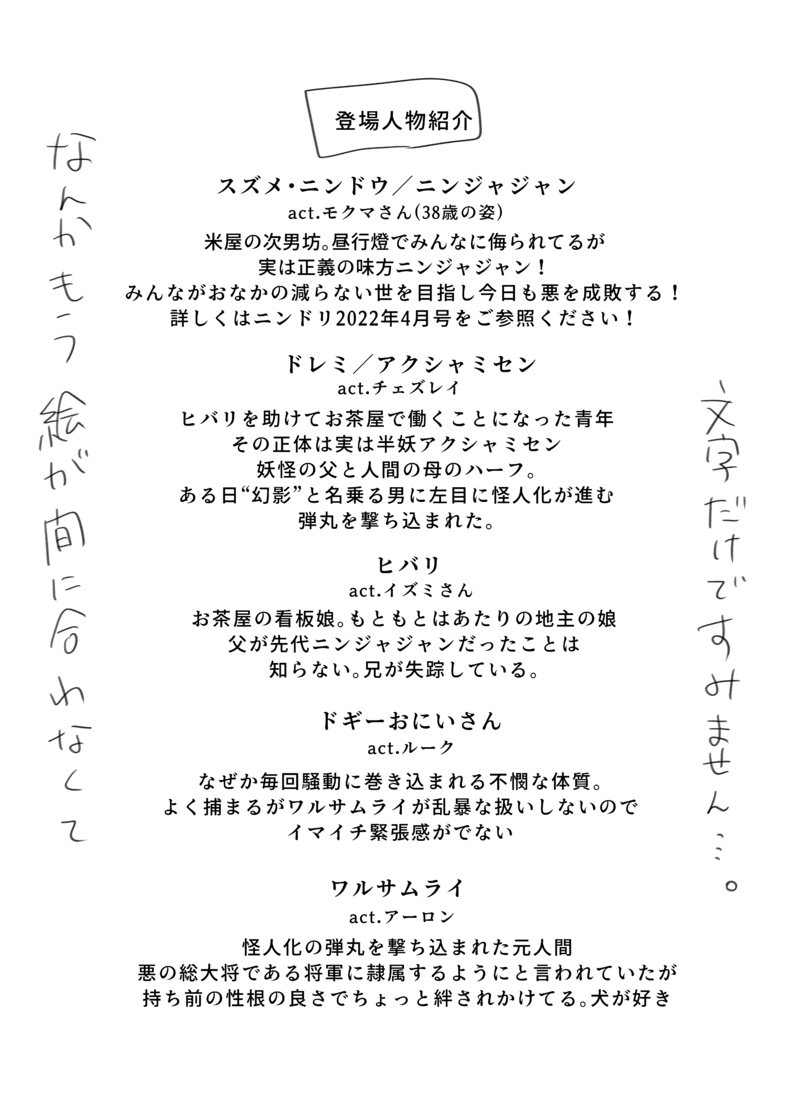 登場人物紹介
スズメ・ニンドウ／ニンジャジャン
act.モクマさん(38歳の姿)
米屋の次男坊。昼行燈でみんなに侮られてるが
実は正義の味方ニンジャジャン！
みんながおなかの減らない世を目指し今日も悪を成敗する！
詳しくはニンドリ2022年4月号をご参照ください！
ドレミ／アクシャミセン
act.チェズレイ
ヒバリを助けてお茶屋で働くことになった青年
その正体は実は半妖アクシャミセン
妖怪の父と人間の母のハーフ。
ある日“幻影”と名乗る男に左目に怪人化が進む
弾丸を撃ち込まれた。
ヒバリ
act.イズミさん
お茶屋の看板娘。もともとはあたりの地主の娘
父が先代ニンジャジャンだったことは
知らない。兄が失踪している。
ドギーおにいさん
act.ルーク
なぜか毎回騒動に巻き込まれる不憫な体質。
よく捕まるがワルサムライが乱暴な扱いしないので
イマイチ緊張感がでない
ワルサムライ
act.アーロン
怪人化の弾丸を撃ち込まれた元人間
悪の総大将である将軍に隷属するようにと言われていたが
持ち前の性根の良さでちょっと絆されかけてる。犬が好き
なんかもう絵が間に合わなくて
文字だけですみません…。